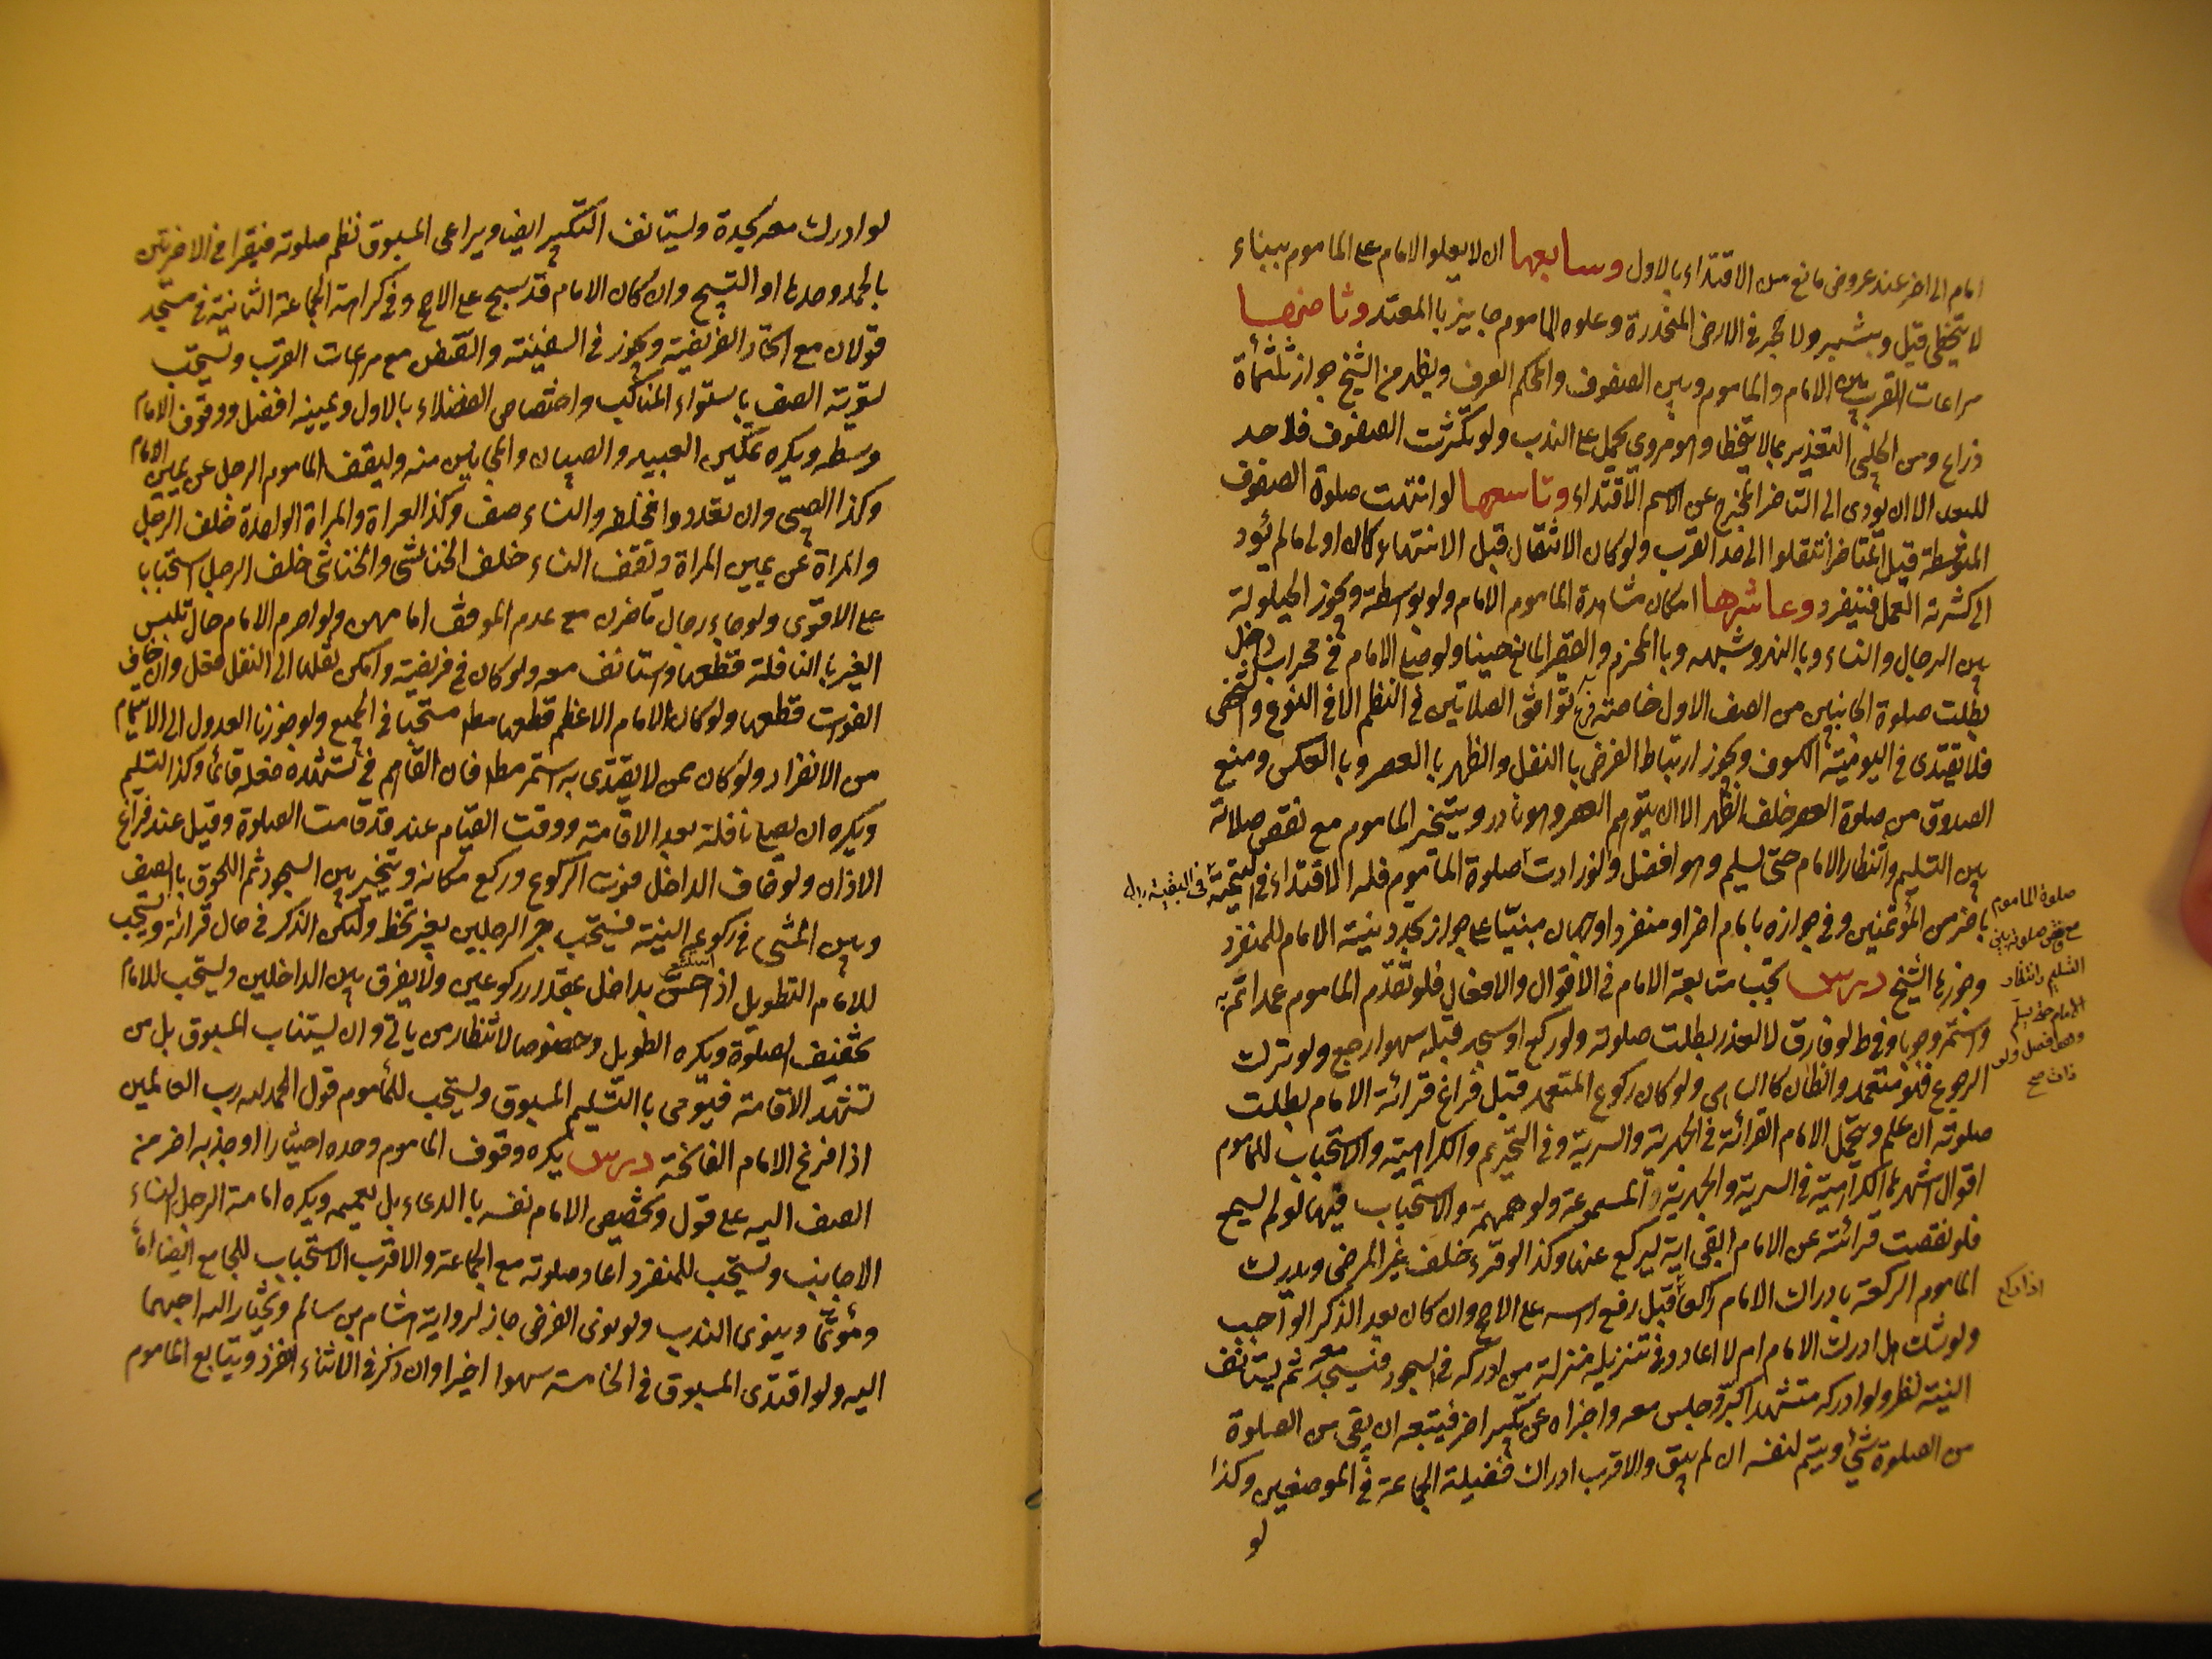 امام الى اخر عند عروض مانع من الاقتداء بالاول وسابعها ان لا يعلو الامام على الماموم ببناء
لا يتخطى قيل وبشبر ولا حجر في الارض المنحدرة وعلوه الماموم جايز با المعتد وثامنها
مراعات القرب بين الامام والماموم وبين الصفوف والمحكم العرف ويظهر من الشيخ جواز ثلثمأة
ذراع ومن الحلبي التقدير بما لا يتخطا وهو مروي يحمل على الندب ولو تكثرت الصفوف فلا حد
للبعد الا ان يودى الى التاخر المخرج عن اسم الاقتداء وتاسعها لو انتهت صلوة الصفوف
المتوسطة قبل المتاخر انتقلوا الى حد القرب ولو كان الانتقال قبل الانتهاء كان اولى مالم يؤد
الى كثرة العمل فينفرد وعاشرها امكان مشاهدة الماموم الامام ولو بواسطة ويجوز الحيلولة
بين الرجال والنساء وبا النهر وشبهه وبا المخرم والقصر المانع حينا ولو صلى الامام في محراب داخل
بطلت صلوة الجانبين من الصف الاول خاصة توافق الصلاتين في النظم لا في النوع والشخص
فلا يقتدى في اليومية الكسوف ويجوز ارتباط الفرض با النفل والظهر با العصر وبا العكس ومنع
الصدوق من صلوة العصر خلف الظهر الا ان يتوهم العصر وهو نادر ويتخير الماموم مع نقص صلاته
بين التسليم وانتظار الامام حتى يسلم وهو افضل ولو زادت صلوة الماموم فله الاقتداء في التتمية
باخر من المؤتمين وفي جوازه بامام اخر او منفرد اوجهان مبنيا على جواز تجدد نية الامام للمنفرد
وجوزها الشيخ درس تجب متابعة الامام في الاقوال والافعال فلو تقدم الماموم عمدا اثم به
واستمر وجوبا وفي ط لو فارق لا لعذر بطلت صلوته ولو ركع او سجد قبله سهوا رجع ولو ترك
الرجوع فلو متعمد والظان كالساهي ولو كان ركوع المتعمد قبل فراغ قرائة الامام بطلت
صلوته ان علم ويتحمل الامام القرائة في الجهرية والسرية وفي التحريم والكراهية والاستحباب للماموم
اقوال اشهرها الكراهية في السرية والجهرية المسموعة ولو همهمة والاستحباب فيها لو لم يسمع
فلو نقصت قرائته عن الامام ابقى اية ليركع عنها وكذا لو قرء خلف غير المرضى ويدرك
الماموم الركعة بادراك الامام راكعا قبل رفع راسه على الاصح وان كان بعد الذكر الواجب
ولو شك هل ادرك الامام ام لا اعاد وفي تنزيله منزلة من ادركه في السجود فيسجد معه ثم يستانف
النية نظر ولو ادركه متشهدا كبر وجلس معه واجزاه عن تكبير اخر فيتبعه ان بقى من الصلوة
من الصلوة شئ ويتم لنفسه ان لم يبق والاقرب ادراك فضيلة الجماعة في الموضعين وكذا
لو
صلوة الماموم
التسليم وانتظار
الامام حتى يسلم
وهو افضل ولو
زادت صح
اذا ركع
لو ادرك معه سجدة وليستانف التكبير ايضا ويراعى المسبوق نظم صلوته فيقرا في الاخريتين
بالحمد وحدها او التسبيح وان كان الامام قد سبح على الاصح وفي كراهة الجماعة الثانية في مسجد
قولان مع اتحاد الفريضة ويجوز في السفينة والسفن مع مرعات القرب ويستحب
تسوية الصف باستواء المناكب واختصاص الفضلاء بالاول ويمينه افضل ووقوف الامام
وسطه ويكره تمكين العبيد والصبيان والمجانين منه وليقف الماموم الرجل عن يمين الامام
وكذا الصبى وان تعددوا فخلفه والنساء صف وكذا العراة والمراة الواحدة خلف الرجل
والمراة عن يمين المراة وتقف النساء خلف الخناثى والخناثى خلف الرجل استحبابا
على الاقوى ولو جاء رجال تاخرن مع عدم الموقف امامهن ولو احرم الامام حال تلبس
الغير با النافلة قطعها واستانف معه ولو كان في فريضة وامكن نقلها الى النفل فعل وان خاف
الفوات قطعها ولو كان الامام الاعظم قطعها مط مستحبا في الجميع ولو جوزنا العدول الى الايتمام
من الانفراد ولو كان ممن لا يقتدى به استمر مط فان القاهم في تشهده فعله قائما وكذا التسليم
ويكره ان يصلى نافلة بعد الاقامة ووقت القيام عند قد قامت الصلوة وقيل عند فراغ
الاذان ولو خاف الداخل فوت الركوع وركع مكانه ويتخير بين السجود ثم اللحوق بالصف
وبين المشى في ركوعه النية فيستحب جر الرجلين بغير تخط وليكن الذكر في حال قرائه ويستحب
للامام التطويل اذا احس بداخل بمقدار ركوعين ولا يفرق بين الداخلين ويستحب للامام
تخفيف الصلوة ويكره الطويل وخصوصا لانتظار من ياتي وان يستناب المسبوق بل من
تشهد الاقامة فيومى با التسليم المسبوق ويستحب للماموم قول الحمد لله رب العالمين
اذا فرغ الامام الفاتحة درس يكره وقوف الماموم وحده اختيارا او جذبه اخر من
الصف اليه على قول وتخصيص الامام نفسه با الدعاء بل يعمم ويكره امامة الرجل النساء
الاجانب ويستحب للمنفرد اعاد صلوته مع الجماعة والاقرب الاستحباب للجامع ايضا اماما
ومؤتما وينوى الندب ولو نوى الفرض جاز لرواية هشام بن سالم ويختار الله احبهما
اليه ولو اقتدى المسبوق في الخامسة سهوا اخيرا وان ذكر في الاثناء انفرد ويتابع الماموم